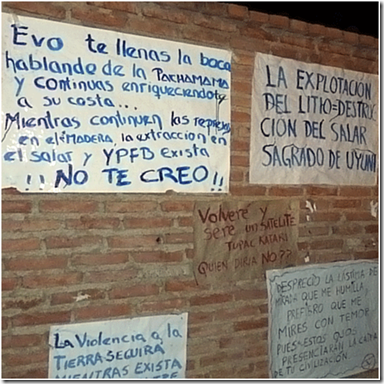 Evo te llenas la boca
hablando de la PACHAMAMA
y continuas enriqueciendoty
a su costa...
Mientras continuen las represas
en el MADERA, la extracción en
el salar y YPFB EXISTA
¡¡ NO TE CREO!!
LA EXPLOTACIÓN
DEL LITIO=DESTRUC
CIÓN DEL SALAR
SAGRADO DE UYUNI
Volveré y
seré un SATELITE
TUPAC KATARI
QUIEN DIRIA NO??
DESPRECIO LA LÁSTIMA DE
QUE ME HUMILLA
PREFIERO QUE ME
MIRES CON TEMOR
PUES ESTOS OJOS
PRESENCIARAN LA CAIDA
DE TU CIVILIZACIÓN.
LA Violencia a la
TIERRA SEGUIRÁ
MIENTRAS EXISTA